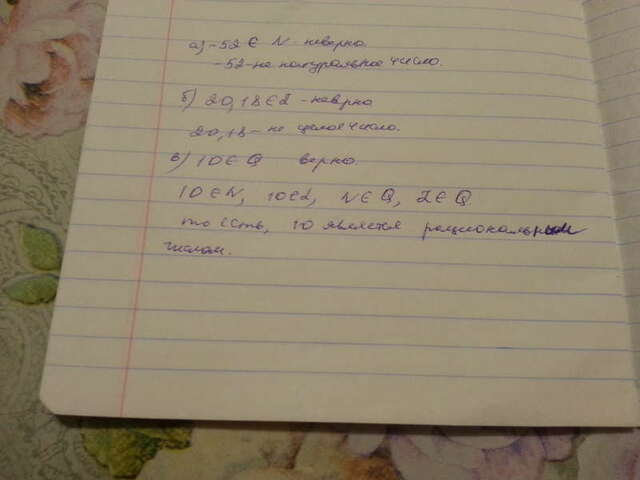 а) -52 ∈ N - неверно.
-52 - не натуральное число.
б) 20,18 ∈ Z - неврно
20,18 - не целое число.
в) 10 ∈ Q верно.
10 ∈ N, 10 ∈ Z, N ∈ Q, Z ∈ Q
то есть, 10 является рациональным
числом.